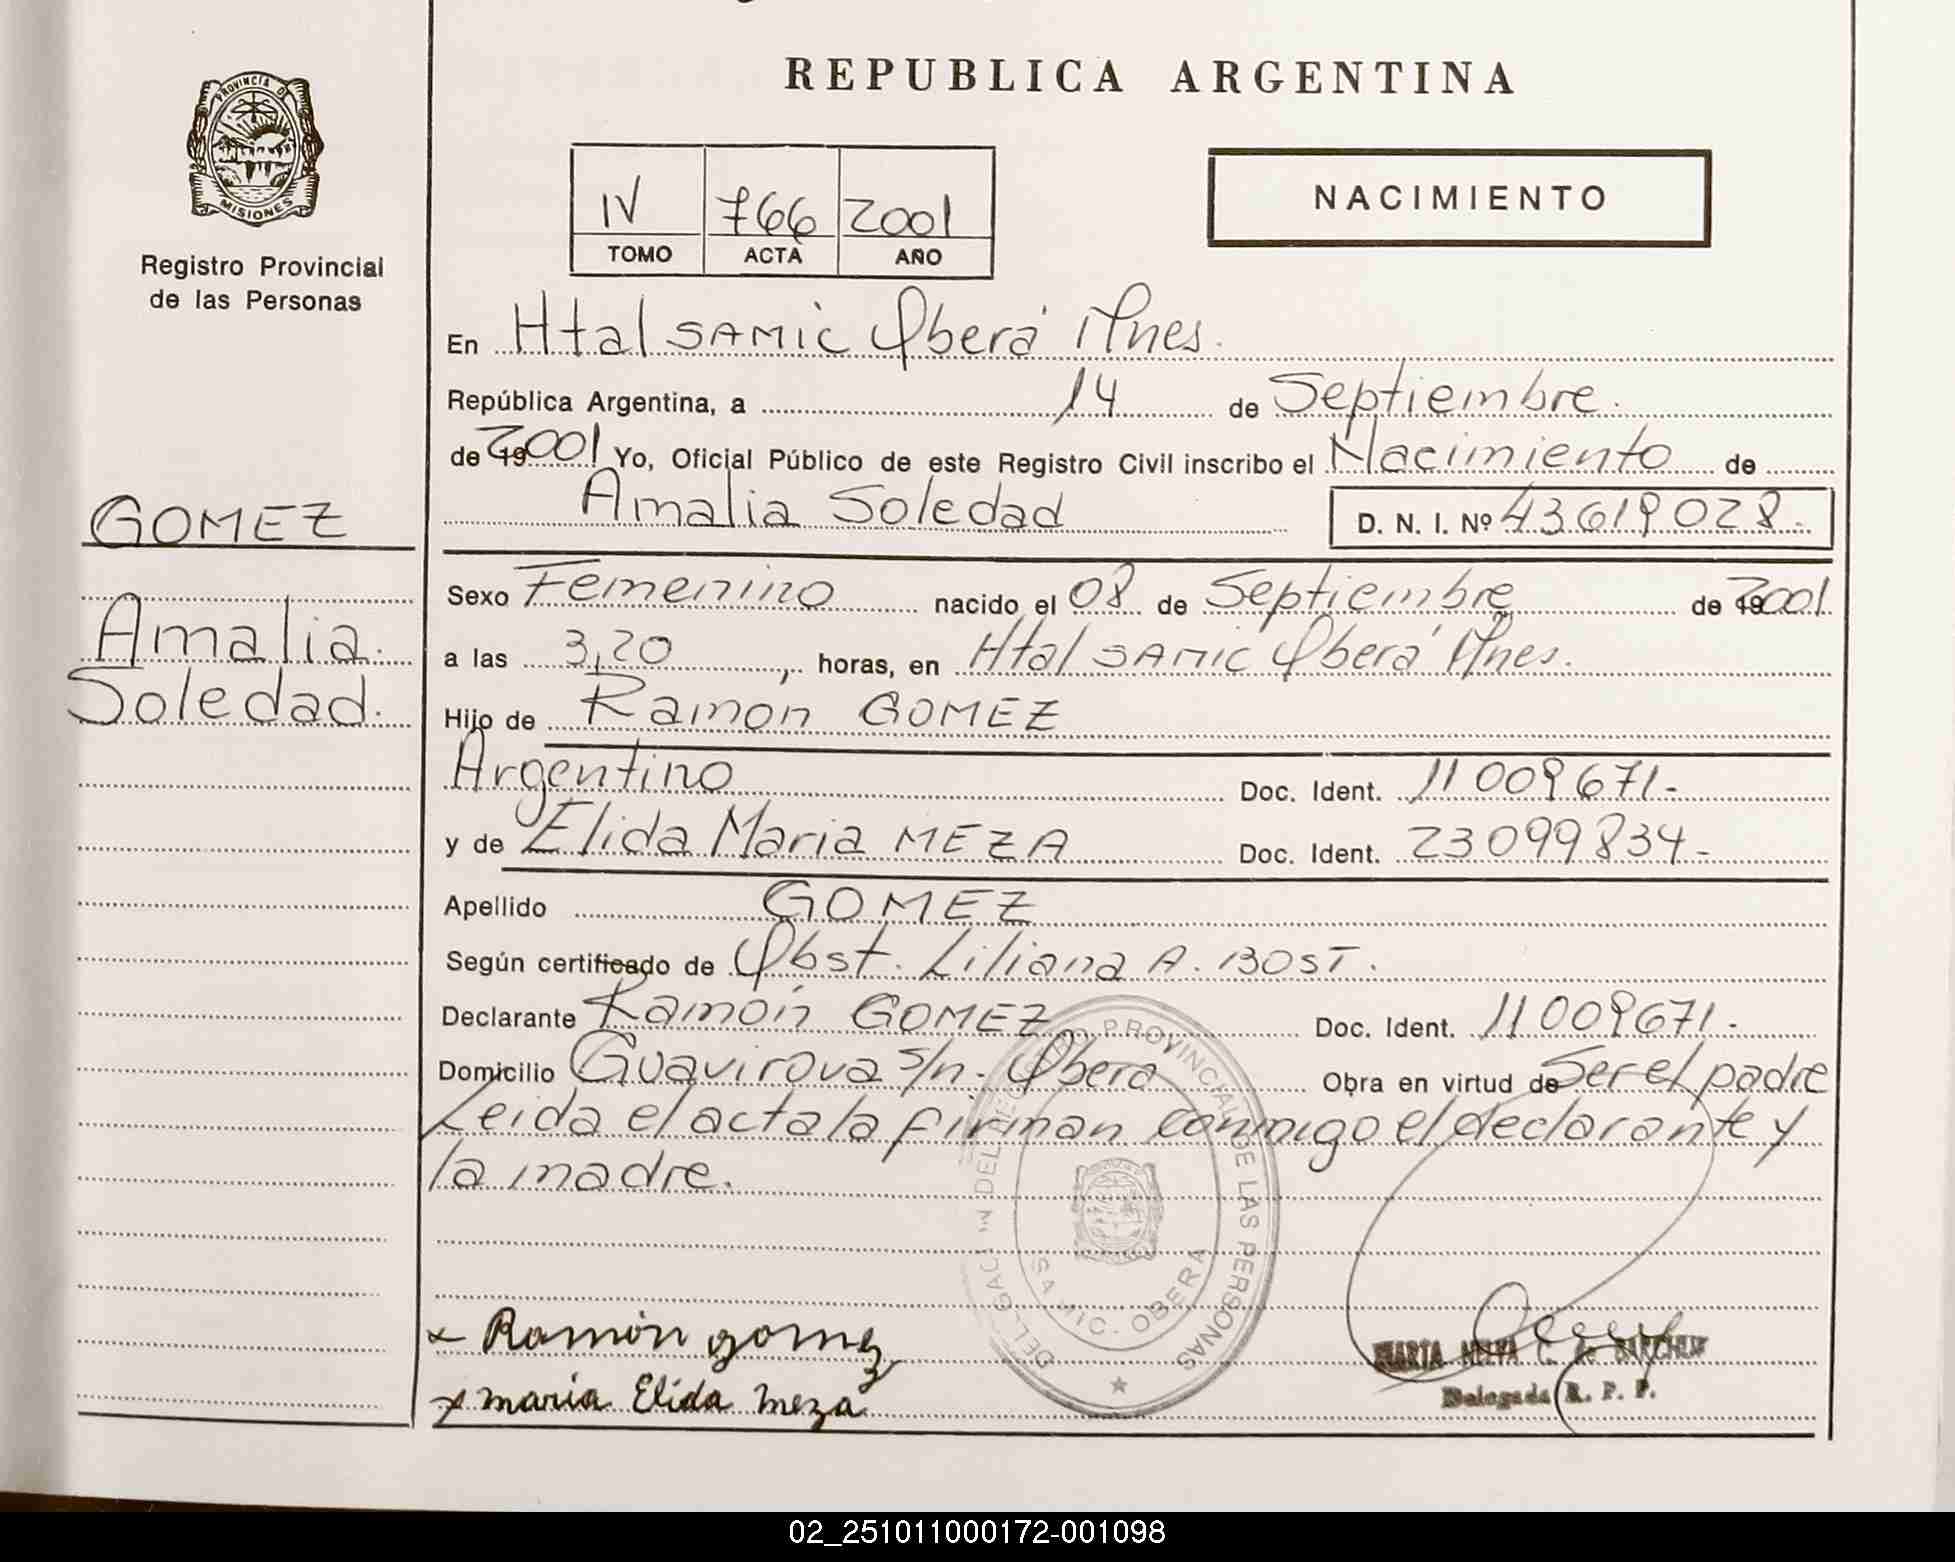 REPUBLICA ARGENTINA
PROVINCIA DE
MISIONES
Registro Provincial
de las Personas
IV 766 2001
TOMO ACTA AÑO
NACIMIENTO
En Htal SAMIC Oberá Mnes.
República Argentina, a 14 de Septiembre.
de 192001 Yo, Oficial Público de este Registro Civil inscribo el Nacimiento de
Amalia Soledad D. N. I. Nº 43619028.
GOMEZ
Amalia
Soledad.
Sexo Femenino nacido el 08 de Septiembre de 192001
a las 3,20 horas, en Htal SAMIC Oberá Mnes.
Hijo de Ramon GOMEZ
Argentino Doc. Ident. 11009671.-
y de Elida Maria MEZA Doc. Ident. 23099834-
Apellido GOMEZ
Según certificado de Obst. Liliana A. BOST.
Declarante Ramón GOMEZ Doc. Ident. 11009671.-
Domicilio Guavirova s/n. Obera Obra en virtud de Ser el padre
Leida el acta la firman conmigo el declarante y
la madre.
PROVINCIAL DE LAS PERSONAS
SAMIC. OBERA
x Ramón gomez
x maria Elida meza
MARTA C. de
Delegada R. P. P.
02_251011000172-001098